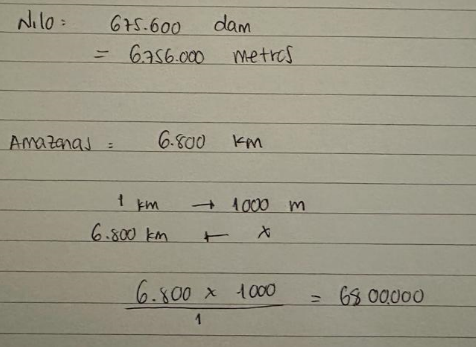 Nilo: 675.600 dam
= 6.756.000 metros
Amazonas = 6.800 km
1 km → 1000 m
6.800 km ← x
6.800 x 1000 = 6800.000
1